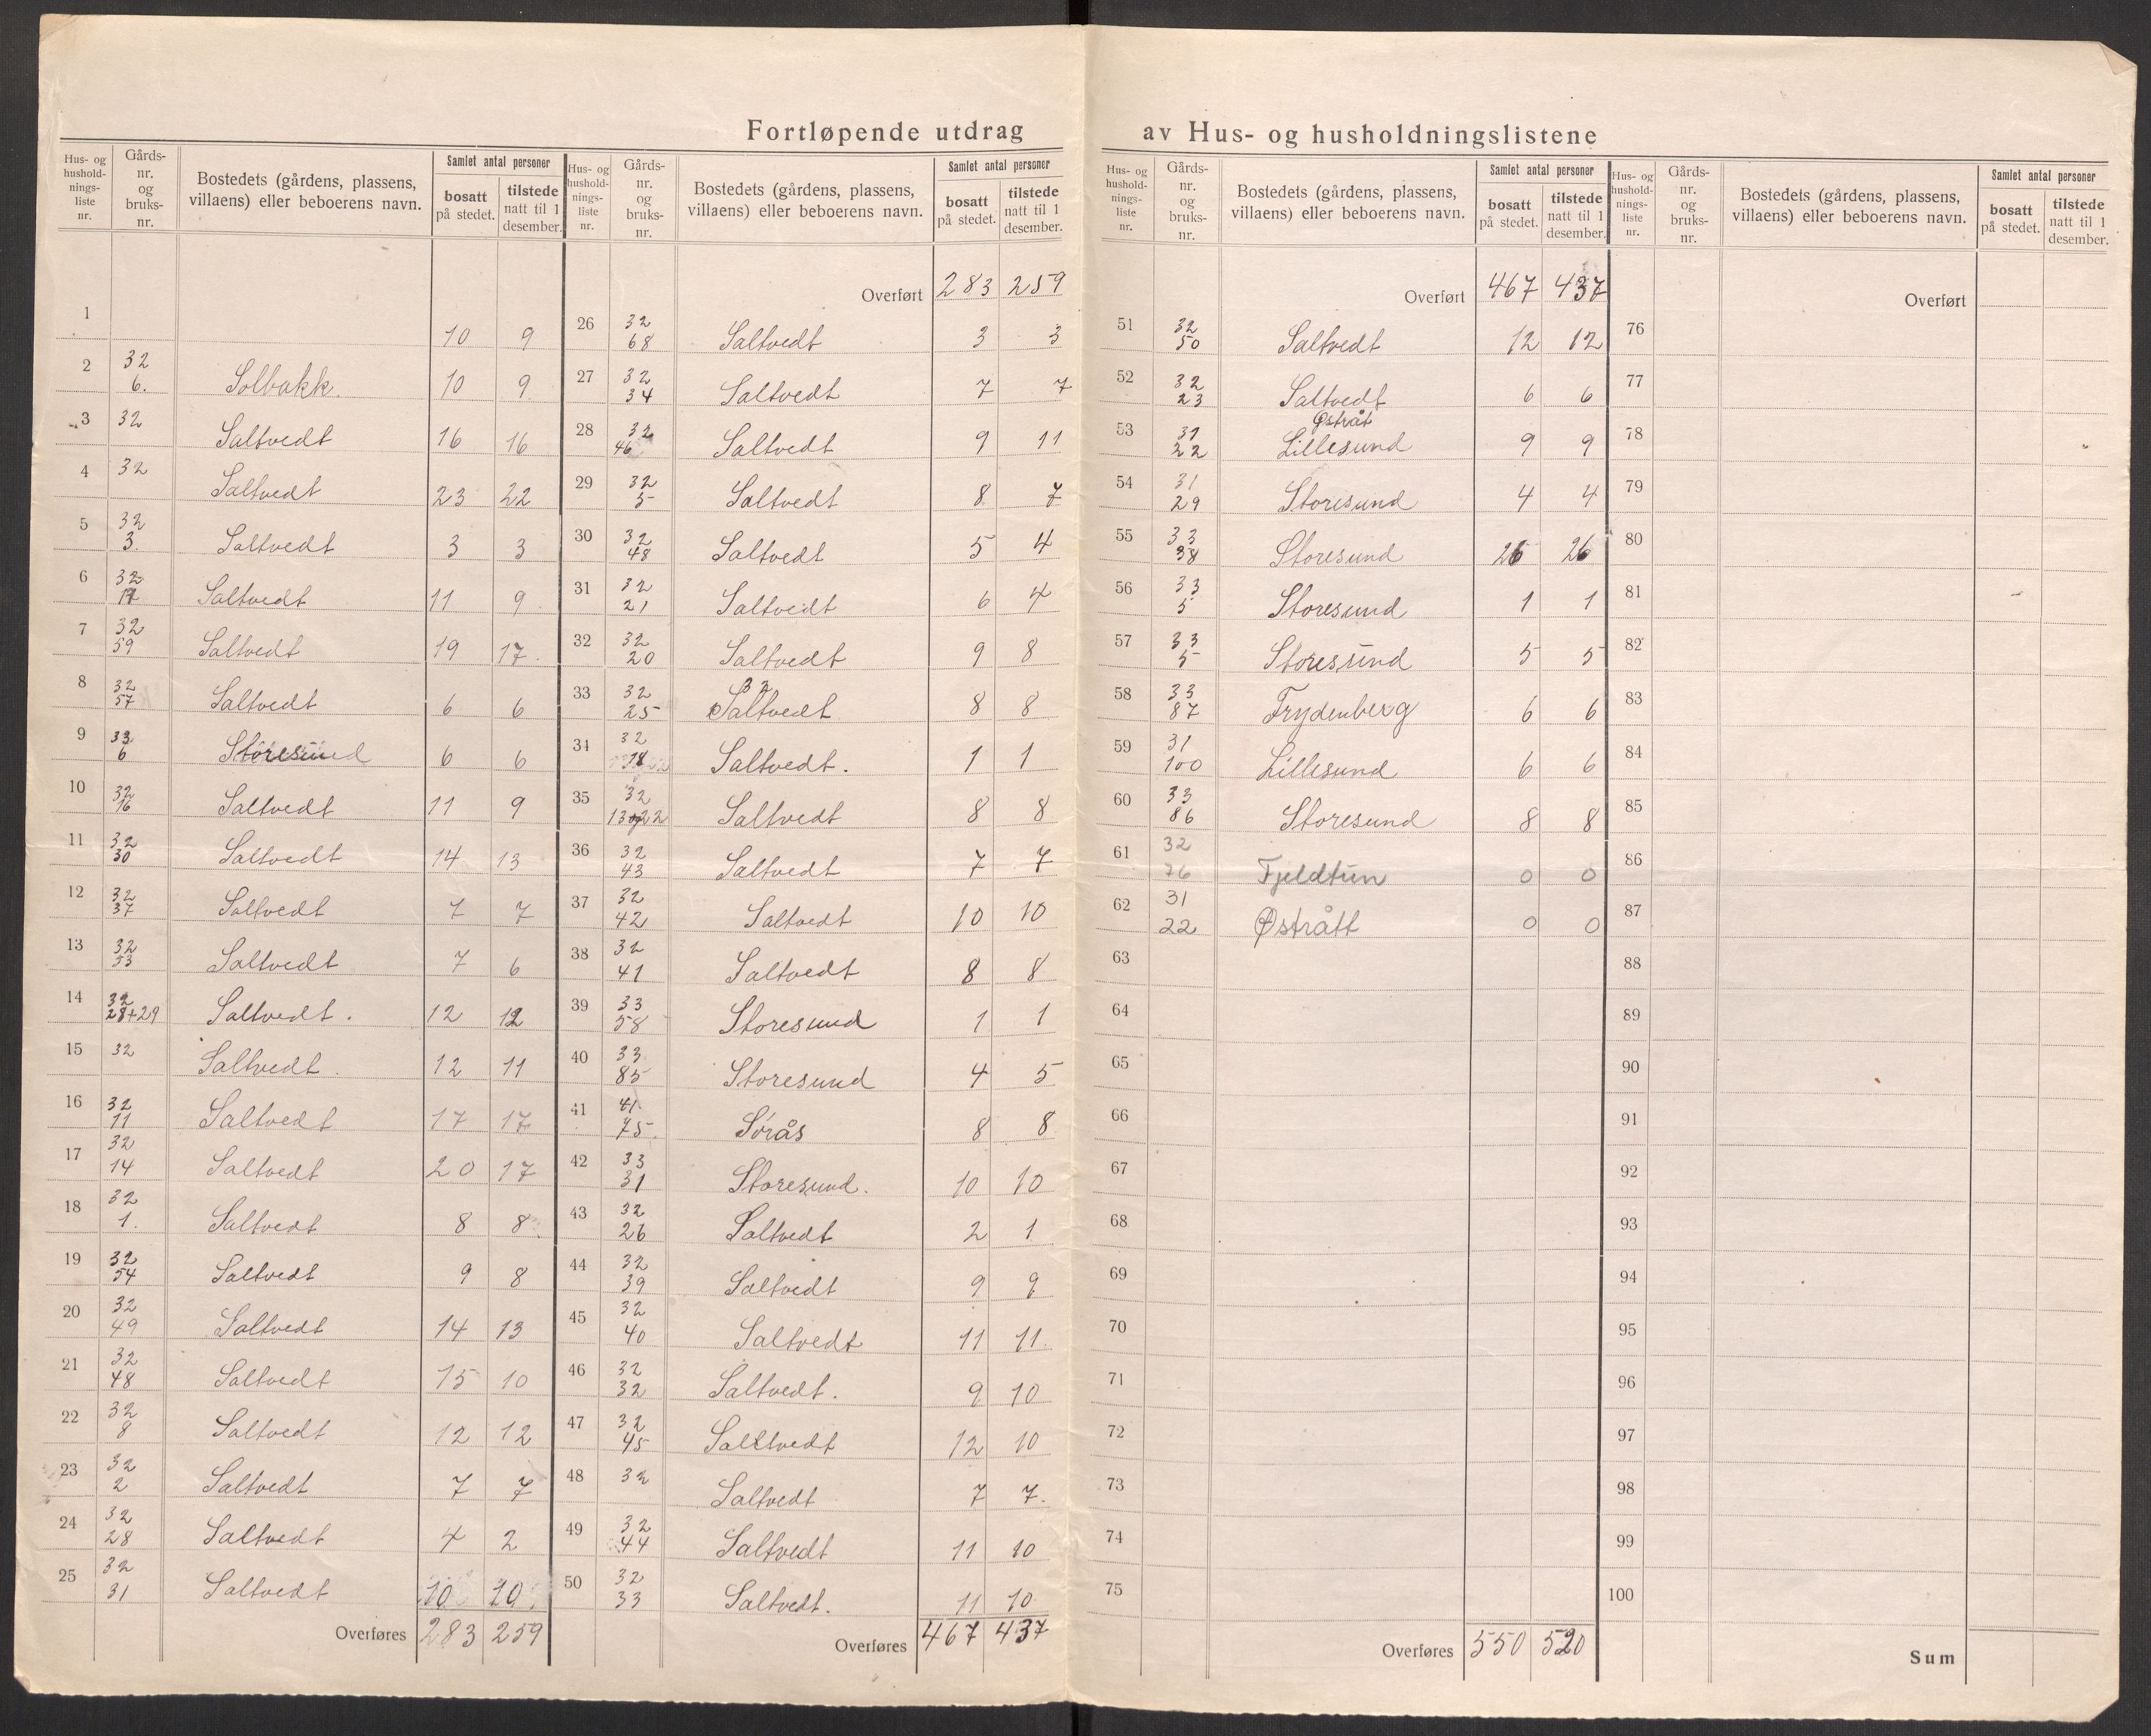 Fortløpende utdrag av Hus- og husholdningslistene
Hus- og hushold-nings-liste nr. | Gårds-nr. og bruks-nr. | Bostedets (gårdens, plassens, villaens) eller beboerens navn. | Samlet antal personer | bosatt på stedet. | tilstede natt til 1 desember.
1 10 9
2 32 6. Solbakk. 10 9
3 32 Saltvedt 16 16
4 32 Saltvedt 23 22
5 32 3. Saltvedt 3 3
6 32 17 Saltvedt 11 9
7 32 59 Saltvedt 19 17.
8 32 57 Saltvedt 6 6
9 33 6 Storesund 6 6
10 32 16 Saltvedt 11 9
11 32 30 Saltvedt 14 13
12 32 37 Saltvedt 7 7
13 32 53 Saltvedt 7 6
14 32 28+29 Saltvedt. 12 12
15 32 Saltvedt. 12 11
16 32 11 Saltvedt 17 17
17 32 14 Saltvedt 20 17
18 32 1. Saltvedt 8 8.
19 32 54 Saltvedt 9 8
20 32 49 Saltvedt 14 13
21 32 48 Saltvedt 15 10
22 32 8 Saltvedt 12 12
23 32 2 Saltvedt 7 7
24 32 28 Saltvedt 4 2
25 32 31 Saltvedt 10 10
Overføres 283 259
Hus- og hushold-nings-liste nr. | Gårds-nr. og bruks-nr. | Bostedets (gårdens, plassens, villaens) eller beboerens navn. | Samlet antal personer | bosatt på stedet. | tilstede natt til 1 desember.
Overført 283 259
26 32 68 Saltvedt 3 3
27 32 34 Saltvedt 7 7
28 32 46 Saltvedt 9 11
29 32 5 Saltvedt 8 7
30 32 48 Saltvedt 5 4
31 32 21 Saltvedt 6 4
32 32 20 Saltvedt 9 8
33 32 25 32 Saltvedt 8 8
34 32 18 Saltvedt. 1 1
35 32 13og22 Saltvedt 8 8
36 32 43 Saltvedt 7 7
37 32 42 Saltvedt 10 10
38 32 41 Saltvedt 8 8
39 33 58 Storesund 1 1
40 33 85 Storesund 4 5
41 41 75. Sørås 8 8
42 33 31 Storesund. 10 10
43 32 26 Saltvedt 2 1
44 32 39 Saltvedt 9 9
45 32 40 Saltvedt 11 11.
46 32 32 Saltvedt. 9 10
47 32 45 Saltvedt 12 10
48 32 Saltvedt 7 7.
49 32 44 Saltvedt 11 10
50 32 33 Saltvedt. 11 10
Overføres 467 437
Hus- og hushold-nings-liste nr. | Gårds-nr. og bruks-nr. | Bostedets (gårdens, plassens, villaens) eller beboerens navn. | Samlet antal personer | bosatt på stedet. | tilstede natt til 1 desember.
Overført 467 437
51 32 50 Saltvedt 12 12
52 32 23 Saltvedt 6 6
Østråt
53 31 22 Lillesund 9 9
54 31 29 Storesund 4 4
55 33 38 Storesund 26 26
56 33 5 Storesund 1 1
57 33 5 Storesund 5 5
58 33 87 Frydenberg 6 6
59 31 100 Lillesund 6 6
60 33 86 Storesund 8 8
61 32 76 Fjeldtun 0 0
62 31 22 Østrått 0 0
63
64
65
66
67
68
69
70
71
72
73
74
75
Overføres 550 520
Hus- og hushold-nings-liste nr. | Gårds-nr. og bruks-nr. | Bostedets (gårdens, plassens, villaens) eller beboerens navn. | Samlet antal personer | bosatt på stedet. | tilstede natt til 1 desember.
Overført
76
77
78
79
80
81
82
83
84
85
86
87
88
89
90
91
92
93
94
95
96
97
98
99
100
Sum